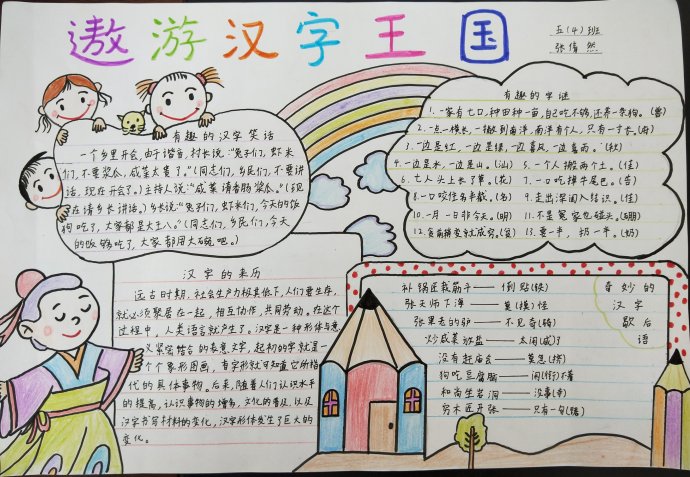 遨游汉字王国
五(4)班
张倩然
有趣的汉字笑话
一个乡里开会,由于谐音,村长说:“兔子们,虾米
们,不要酱瓜,咸菜太贵了。”(同志们,乡民们,不要讲
话,现在开会了。)主持人说:“咸菜请香肠酱瓜。”(现
在请乡长讲话。)乡长说:“兔子们,虾米们,今天的饭
狗吃了,大家都是大王八。”(同志们,乡民们,今天
的饭够吃了,大家都用大碗吧。)
有趣的字谜
1.一家有七口,种田种一亩,自己吃不够,还养一条狗。(兽)
2.一点一横长,一撇到南洋,南洋有个人,只有一寸长。(府)
3.一边是红,一边是绿,一边喜风,一边喜雨。(秋)
4.一边是水,一边是山。(汕)
5.一个人搬两个土。(佳)
6.七人头上长了草。(花)
7.一口吃掉牛尾巴。(告)
8.一口咬住多半截。(名)
9.走出深闺人结识。(佳)
10.一月一日非今天。(明)
11.不是冤家也碰头。(硼)
12.食病
13.要一半,扔一半。(奶)
汉字的来历
远古时期,社会生产力极其低下,人们要生存,
就必须聚居在一起,相互协作,共同劳动。在这个
过程中,人类语言就产生了。汉字是一种形体与意
义紧密结合的表意文字,起初的字就是一
个个象形图画,看字形就可知道它所指
代的具体事物。后来,随着人们认识水平
的提高,认识事物的增多,文化的普及,以及
汉字书写材料的变化,汉字形体发生了巨大的
变化。
奇妙的
汉字
歇后
语
补锅匠栽筋斗——倒贴(铁)
张天师下海——莫(摸)怪
张果老的驴——不见奇(骑)
炒咸菜放盐——太闲(咸)了
没有赶庙会——莫急(挤)
狗吃豆腐脑——闲(衔)不着
和尚坐岩洞——没事(寺)
穷木匠开张——只有一句(锯)